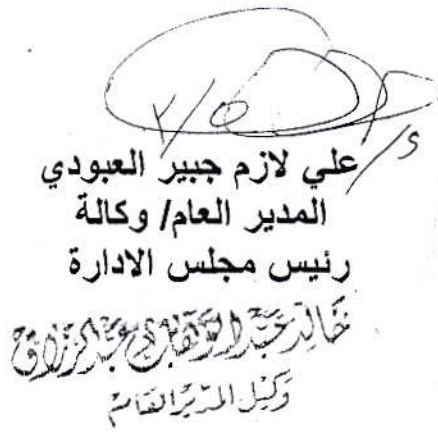 ٢/٥
علي لازم جبير العبودي
المدير العام/ وكالة
رئيس مجلس الادارة
خالد عبد الوهاب عبد الرزاق
وكيل المدير العام